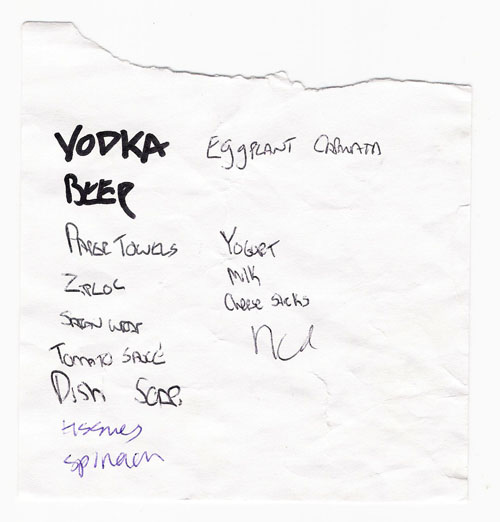 VODKA
BEER
PAPER TOWELS
ZIPLOC
TOMATO SAUCE
DISH SOAP
tissues
spinach
EggPLANT
YOGURT
MILK
CHEESE STICKS